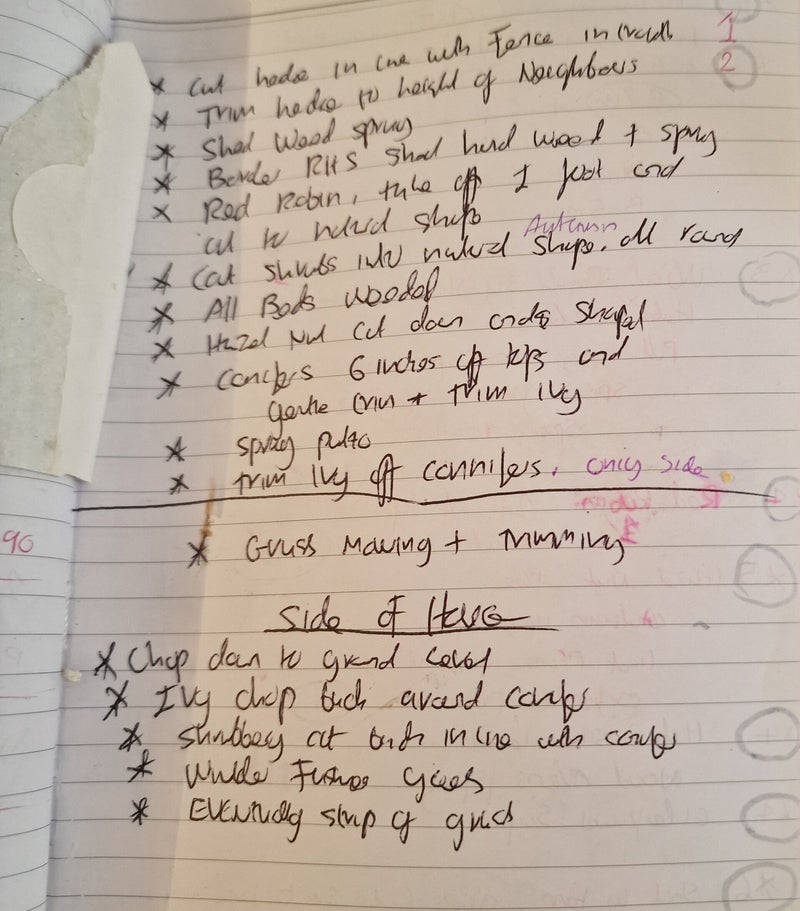 * Cut hedge in line with Fence in width 1
* Trim hedge to height of Neighbours 2
* Shed Weed spray
* Border RHS shed hand weed + spray
* Red Robin, take off 1 foot and
cut to natural shape
Autumn
* Cut shrubs into natural shape. all round
* All Beds weeded
* Hazel Nut cut down and shaped
* Conifers 6 inches off tops and
gentle trim + trim ivy
* spray patio
* trim ivy off connifers. only side
90
* Grass Mowing + Trimming
Side of House
* Chop down to ground level
* Ivy chop back around conifers
* Shrubbery cut back in line with conifers
* Whole Fushia goes
* Eventually strip of grass